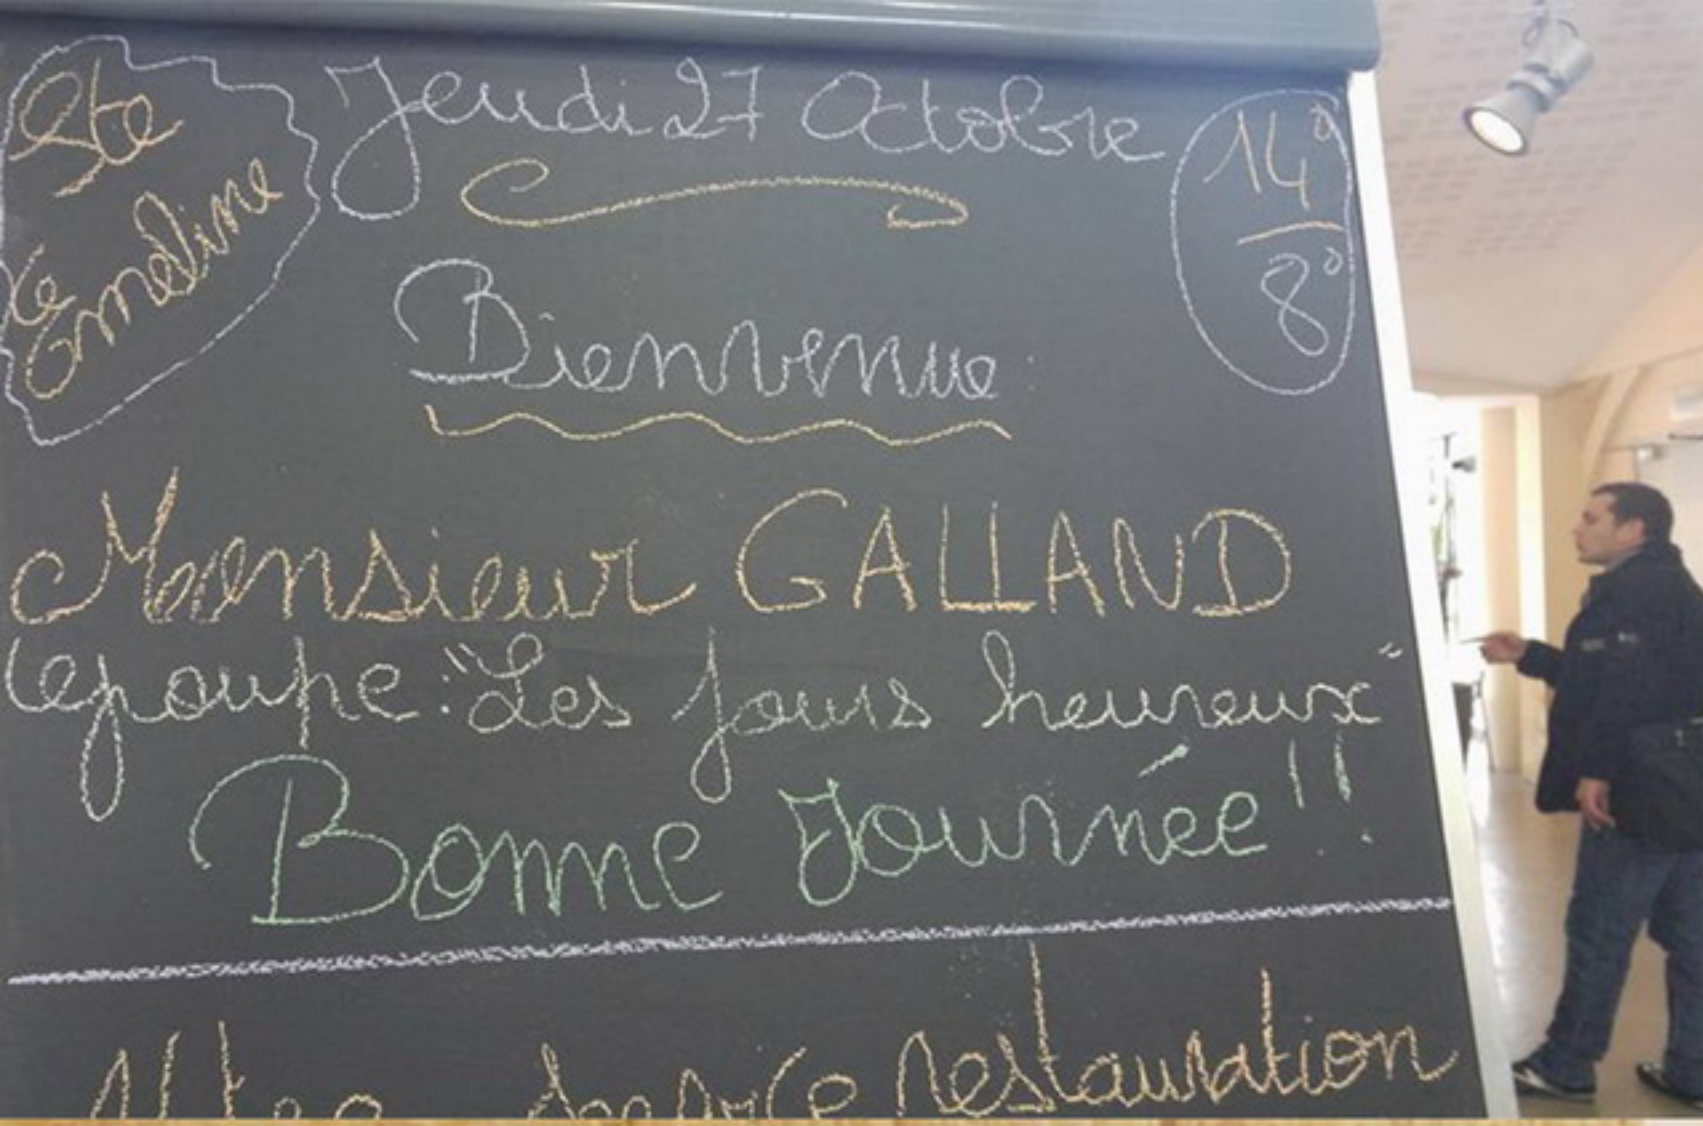 Ste
Emeline
Jeudi 27 Octobre
14°
8°
Bienvenue
Monsieur GALLAND
Le groupe: "Les jours heureux"
Bonne Journée!!
Votre service restauration